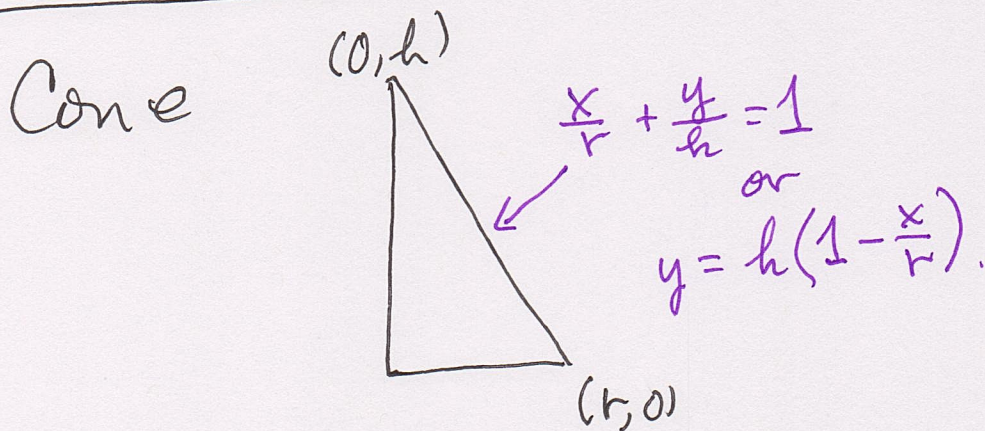 Cone
(0,h)
x/r + y/h = 1
or
y = h(1 - x/r).
(r,0)